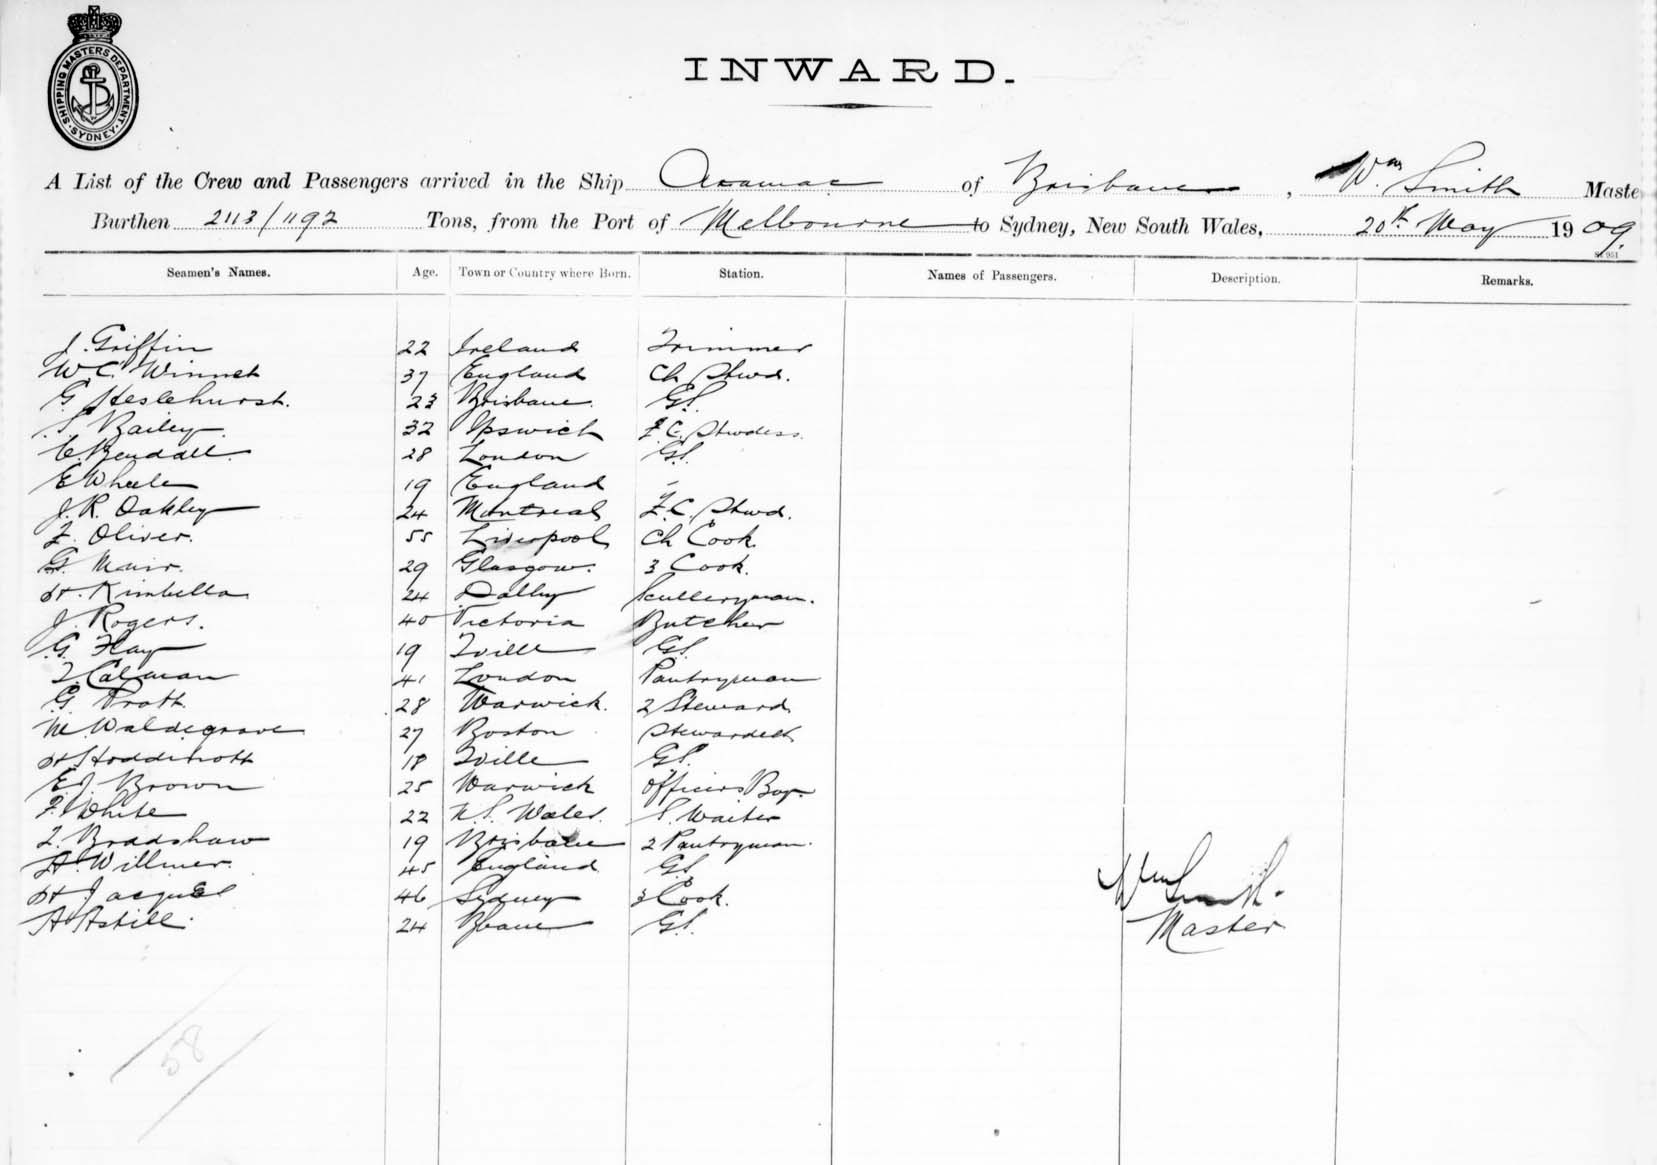 SHIPPING MASTERS DEPARTMENT. SYDNEY
INWARD.
A List of the Crew and Passengers arrived in the Ship Aramac of Brisbane, Wm Smith Maste
Burthen 2113/1192 Tons, from the Port of Melbourne to Sydney, New South Wales, 20th May 1909.
St 951
Seamen's Names. Age. Town or Country where Born. Station. Names of Passengers. Description. Remarks.
J. Griffin 22 Ireland Trimmer
W C. Winnet 37 England Ch Stwd.
G Heslehurst. 23 Brisbane. GS.
S Bailey. 32 Ipswich F.C. Stwdess.
C. Kendall. 28 London GS.
E Wheele 19 England "
J. R. Oakley 24 Montreal F.C. Stwd.
F. Oliver. 55 Liverpool Ch Cook.
G. Muir. 29 Glasgow. 3 Cook.
H. Kimbella 24 Dalby Sculleryman.
J. Rogers. 40 Victoria Butcher
G. Hay 19 Tville GS.
T Calman 41 London Pantryman
G. Pratt. 28 Warwick. 2 Steward
M. Waldegrave 27 Boston Stewardess
H Hoddinott 18 Tville GS.
E J. Brown 25 Warwick Officers Boy.
F. White 22 N.S. Wales. S. Waiter
T. Bradshaw 19 Brisbane 2 Pantryman.
A. Willmer. 45 England GS.
H Jacques 46 Sydney 3 Cook.
A Astill. 24 Bbane GS.
Wm Smith.
Master
58